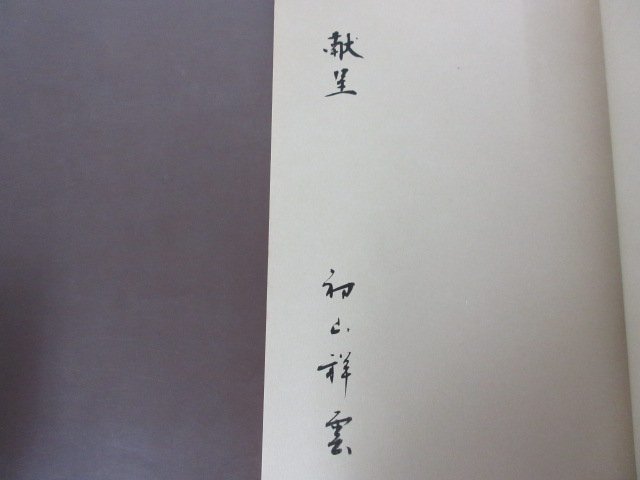 献呈
初山祥雲